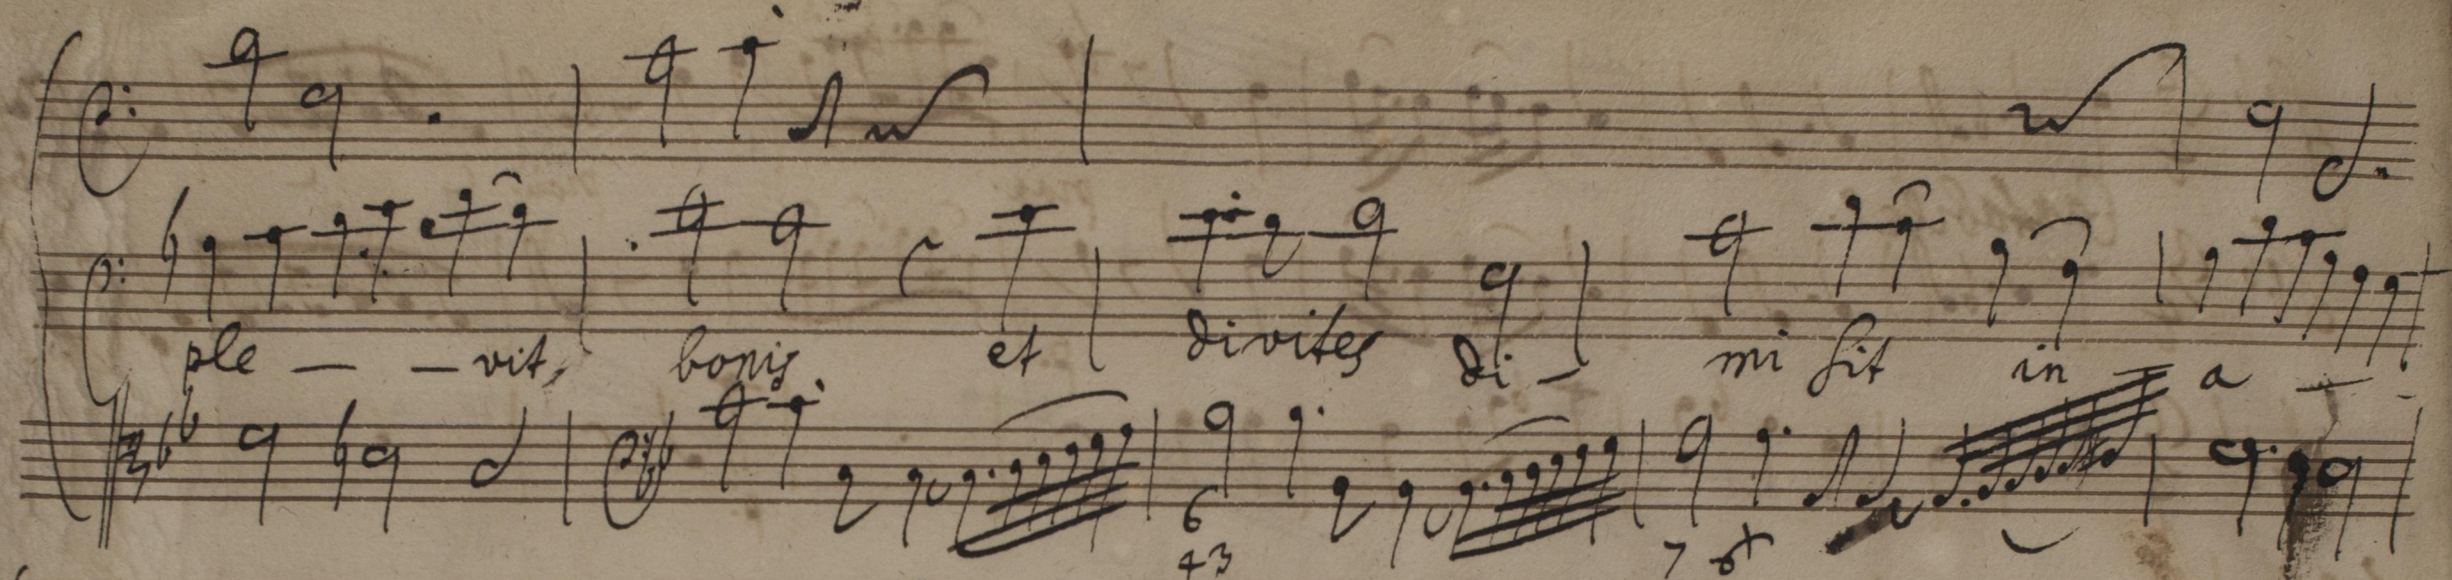 ple — — vit bonis et divites di — mi sit in — a —
6
43 7 6